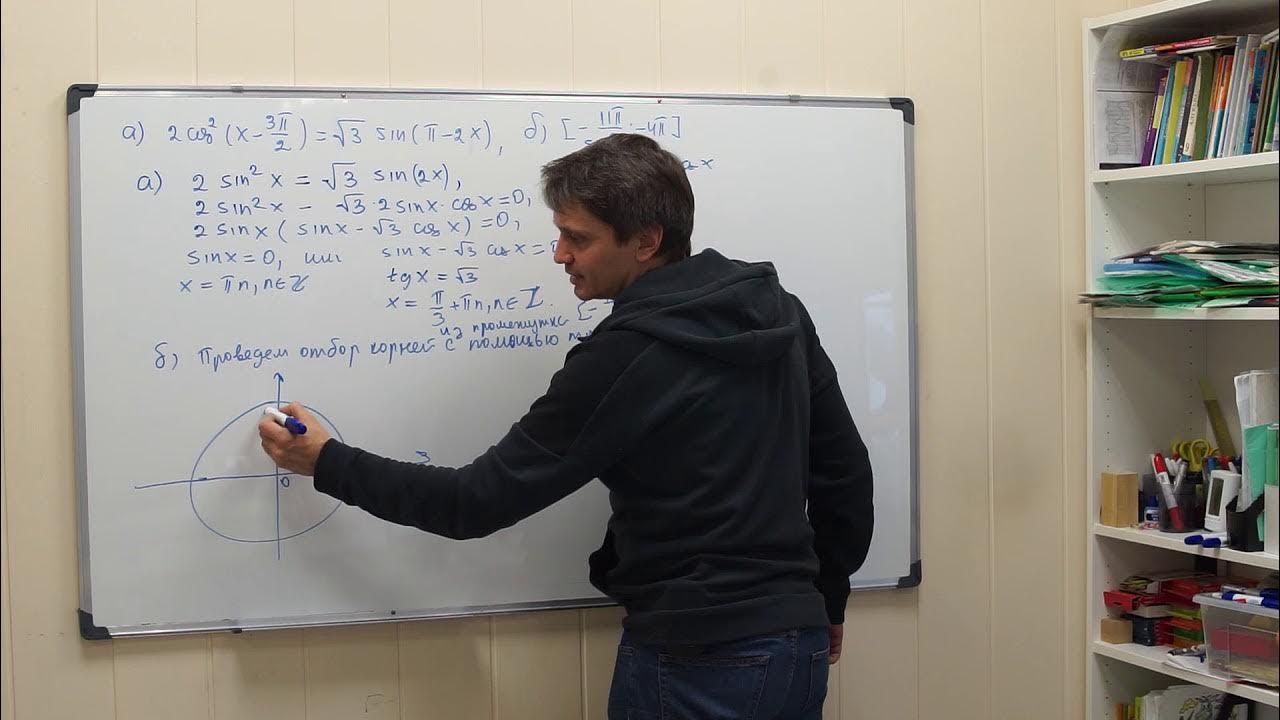 а) 2cos²(x-3π/2)=√3 sin(π-2x), б) [-11π/ ;-4π]
а) 2 sin²x = √3 sin(2x),
2 sin²x - √3·2sinx·cosx=0,
2 sinx(sinx-√3 cosx)=0,
sinx=0, или sinx-√3 cosx=
x=πn, n∈ℤ tgx=√3
x=π/3+πn, n∈ℤ.
из промежутка [-
б) Проведем отбор корней с помощью
0